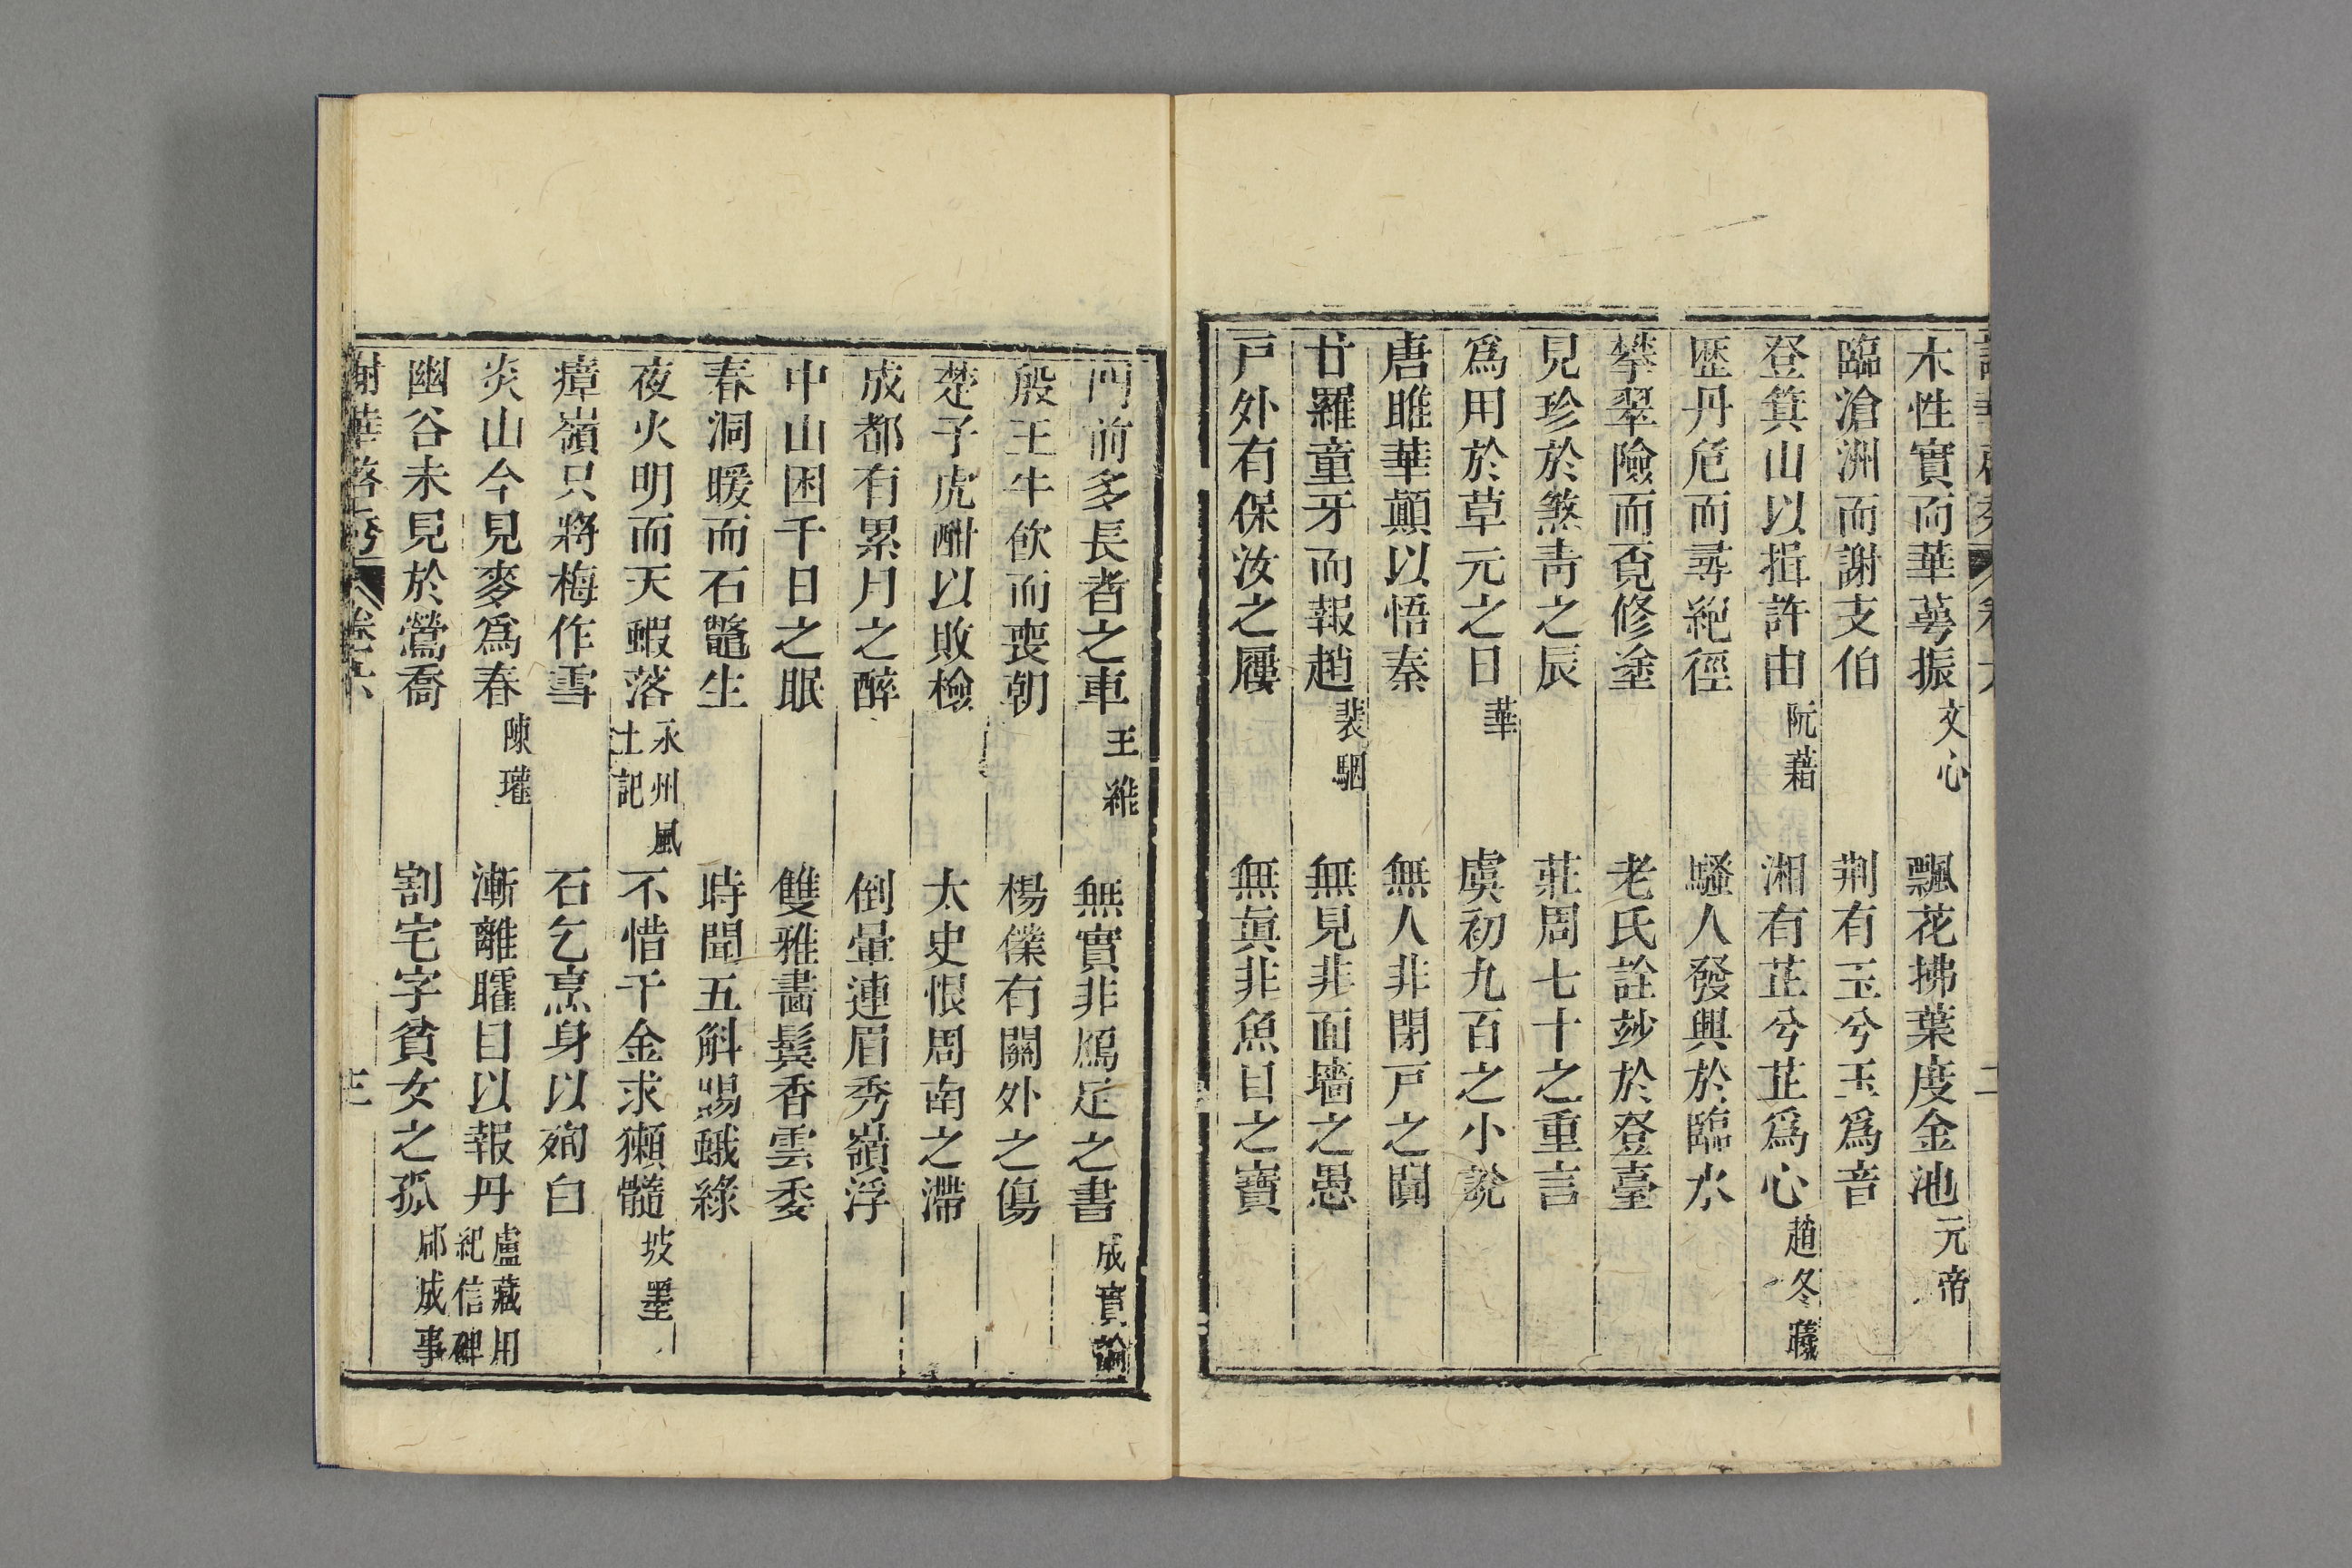 木性實而華萼振文心　飄花拂葉度金池元帝
臨滄洲而謝支伯　荆有玉兮玉爲音
登箕山以揖許由阮藉　湘有芷兮芷爲心趙冬曦
歷丹危而尋絶徑　騷人發興於臨水
攀翠險而覓修塗　老氏詮妙於登臺
見珍於煞靑之辰　莊周七十之重言
爲用於草元之日華　虞初九百之小說
唐雎華顚以悟秦　無人非閉戸之闃
甘羅童牙而報趙裴駰　無見非面墻之愚
戸外有保汝之屨　無眞非魚目之寶
門前多長者之車王維　無實非鴈足之書成實論
殷王牛飮而喪朝　楊僕有關外之傷
楚子虎酣以敗檢　太史恨周南之滯
成都有累月之醉　倒暈連眉秀嶺浮
中山困千日之眠　雙雅畵鬓香雲委
春洞暖而石鼈生　時聞五斛賜蛾綠
夜火明而天蝦落永州風土記　不惜千金求獺髓坡墨
瘴嶺只將梅作雪　石乞烹身以殉白
炎山今見麥爲春陳瓘　漸離矐目以報丹盧藏用紀信碑
幽谷未見於鶯喬　割宅字貧女之孤郕成事
謝華啓秀　卷六　三